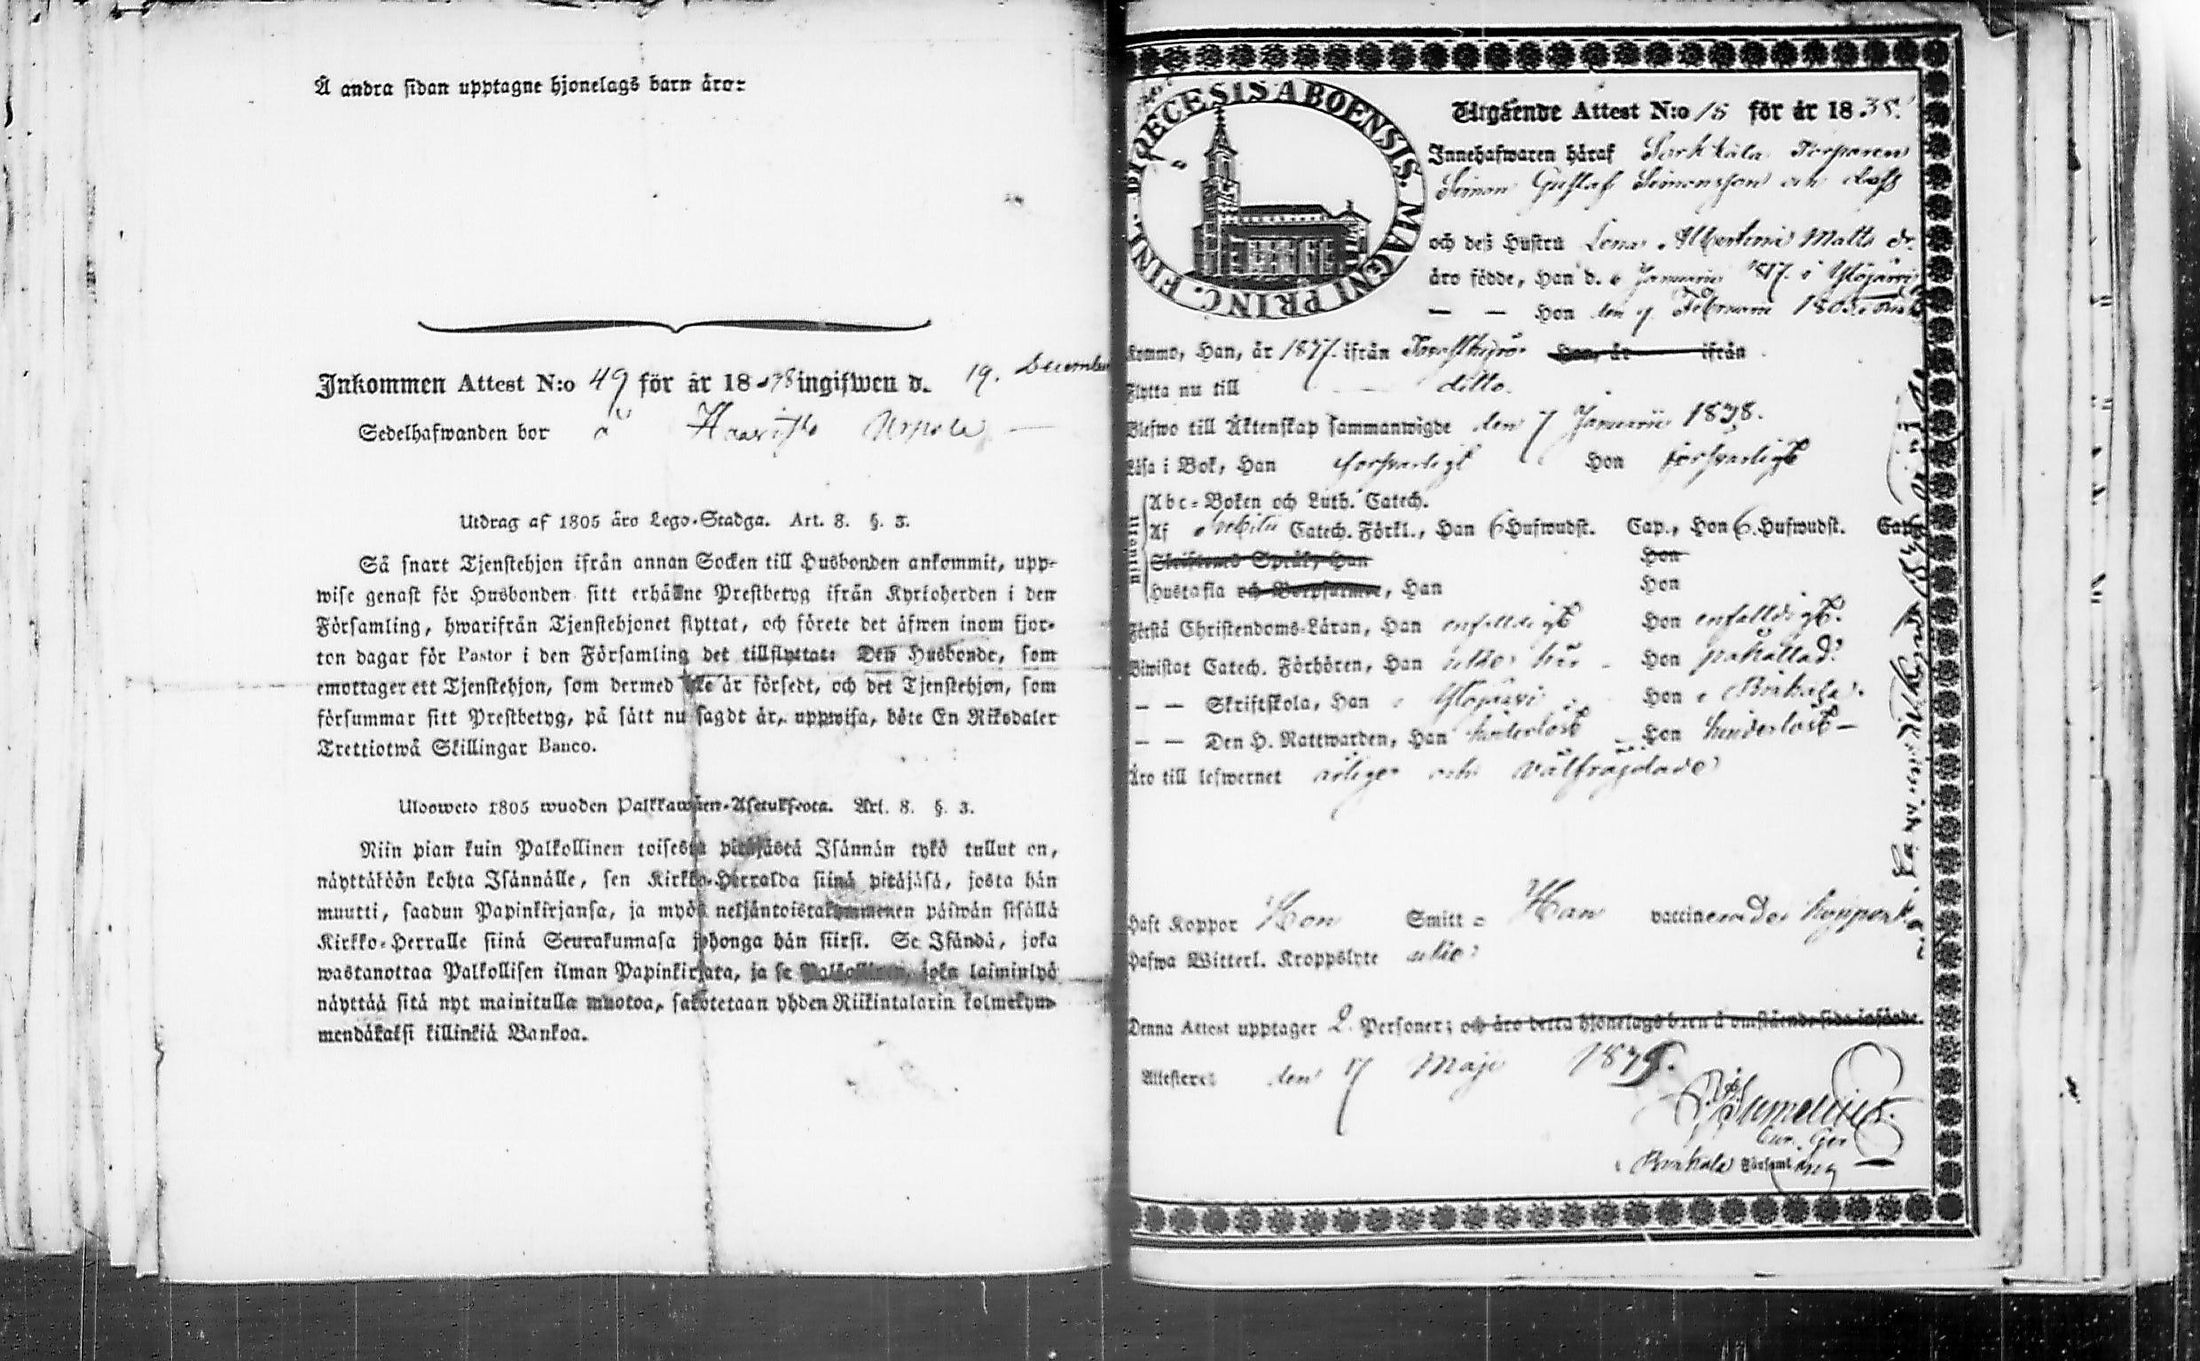 Å andra sidan upptagne hjonelags barn äro:
Inkommen Attest N:o 49 för år 1838 ingifwen d. 19. December
Sedelhafwanden bor å Haavisto
Utdrag af 1805 års Lego-Stadga. Art. 8. §. 3.
Så snart Tjenstehjon ifrån annan Socken till Husbonden ankommit, upp-
wise genast för Husbonden sitt erhållne Prestbetyg ifrån Kyrkoherden i den
Församling, hwarifrån Tjenstehjonet flyttat, och förete det äfwen inom fjor-
ton dagar för Pastor i den Församling det tillflyttat. Den Husbonde, som
emottager ett Tjenstehjon, som dermed icke är försedt, och det Tjenstehjon, som
försummar sitt Prestbetyg, på sätt nu sagdt är, uppwisa, böte En Riksdaler
Trettiotwå Skillingar Banco.
Ulosweto 1805 wuoden Palkkawäen-Asetuksesta. Art. 8. §. 3.
Niin pian kuin Palkollinen toisesta pitäjästä Isännän tykö tullut on,
näyttäköön kohta Isännälle, sen Kirkko-Herralda siinä pitäjäsä, josta hän
muutti, saadun Papinkirjansa, ja myös neljäntoistakymmenen päiwän sisällä
Kirkko-Herralle siinä Seurakunnasa johonga hän siirsi. Se Isändä, joka
wastanottaa Palkollisen ilman Papinkirjata, ja se Palkollinen, joka laiminlyö
näyttää sitä nyt mainitulla muotoa, sakotetaan yhden Riikintalarin kolmekym-
mendäkaksi killinkiä Bankoa.
FINL. DIOECESIS ABOENSIS. MAGNI PRINC.
Utgående Attest N:o 15 för år 1838.
Innehafwaren häraf Torparen
Simon Gustaf Simonsson och dess
och deß Hustru Lena Albertina Matts dr.
äro födde, Han d. 6 Januarii 1817. i Ylöjärvi
— — Hon den 7 Februarii
Kommo, Han, år 1837. ifrån Han, år ifrån
Flytta nu till ditto.
Blefwo till Äktenskap sammanwigde den 7 Januarii 1838.
Läsa i Bok, Han försvarligt Hon försvarligt
Abc-Boken och Luth. Catech.
Af Catech. Förkl., Han 6 Hufwudst. Cap., Hon 6. Hufwudst. Cap.
Skriftenes Språk, Han Hon
Hustafla och Börpsalmer, Han Hon
Förstå Christendoms-Läran, Han enfaldigt Hon enfaldigt.
Biwistat Catech. Förhören, Han icke här Hon
— — Skriftskola, Han i Ylöjärvi Hon i Birkala.
— — Den H. Nattwarden, Han hinderlöst Hon hinderlöst
Äro till lefwernet ärlige och välfräjdade
Haft Koppor Hon Smitt- Han vaccinerade kopporne
Hafwa Witterl. Kroppslyte icke
Denna Attest upptager 2 Personer; och äro detta hjonelags barn å omstående sida införde.
Attesteret den 17 Maji 1838.
i Birkala Församling